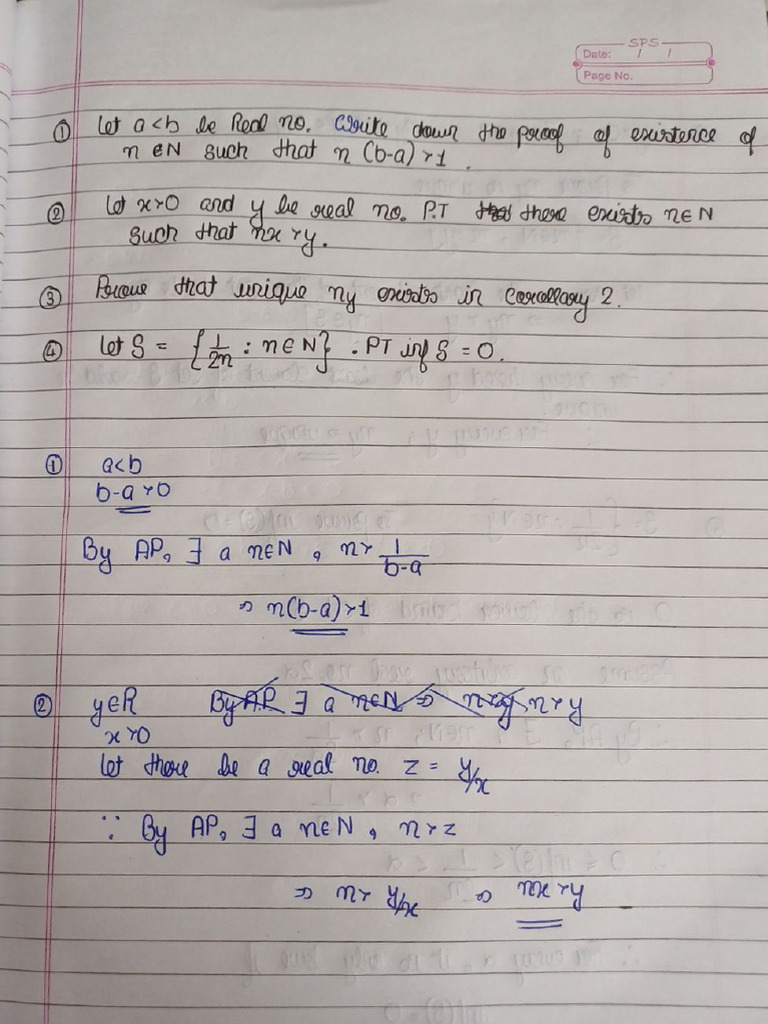 SPS
Date: / /
Page No.
① Let a<b be Real no. Write down the proof of existence of
n∈N such that n(b-a)>1.
② Let x>0 and y be real no. P.T there exists n∈N
such that nx>y.
③ Prove that unique ny exists in Corollary 2.
④ Let S = {1/2n : n∈N}. PT inf S = 0.
① a<b
b-a>0
By AP, ∃ a n∈N, n> 1/b-a
⇒ n(b-a)>1
② y∈R By A.P. ∃ a n∈N ⇒ n>y
x>0
Let there be a real no. z = y/x
∵ By AP, ∃ a n∈N, n>z
⇒ n> y/x ⇒ nx>y